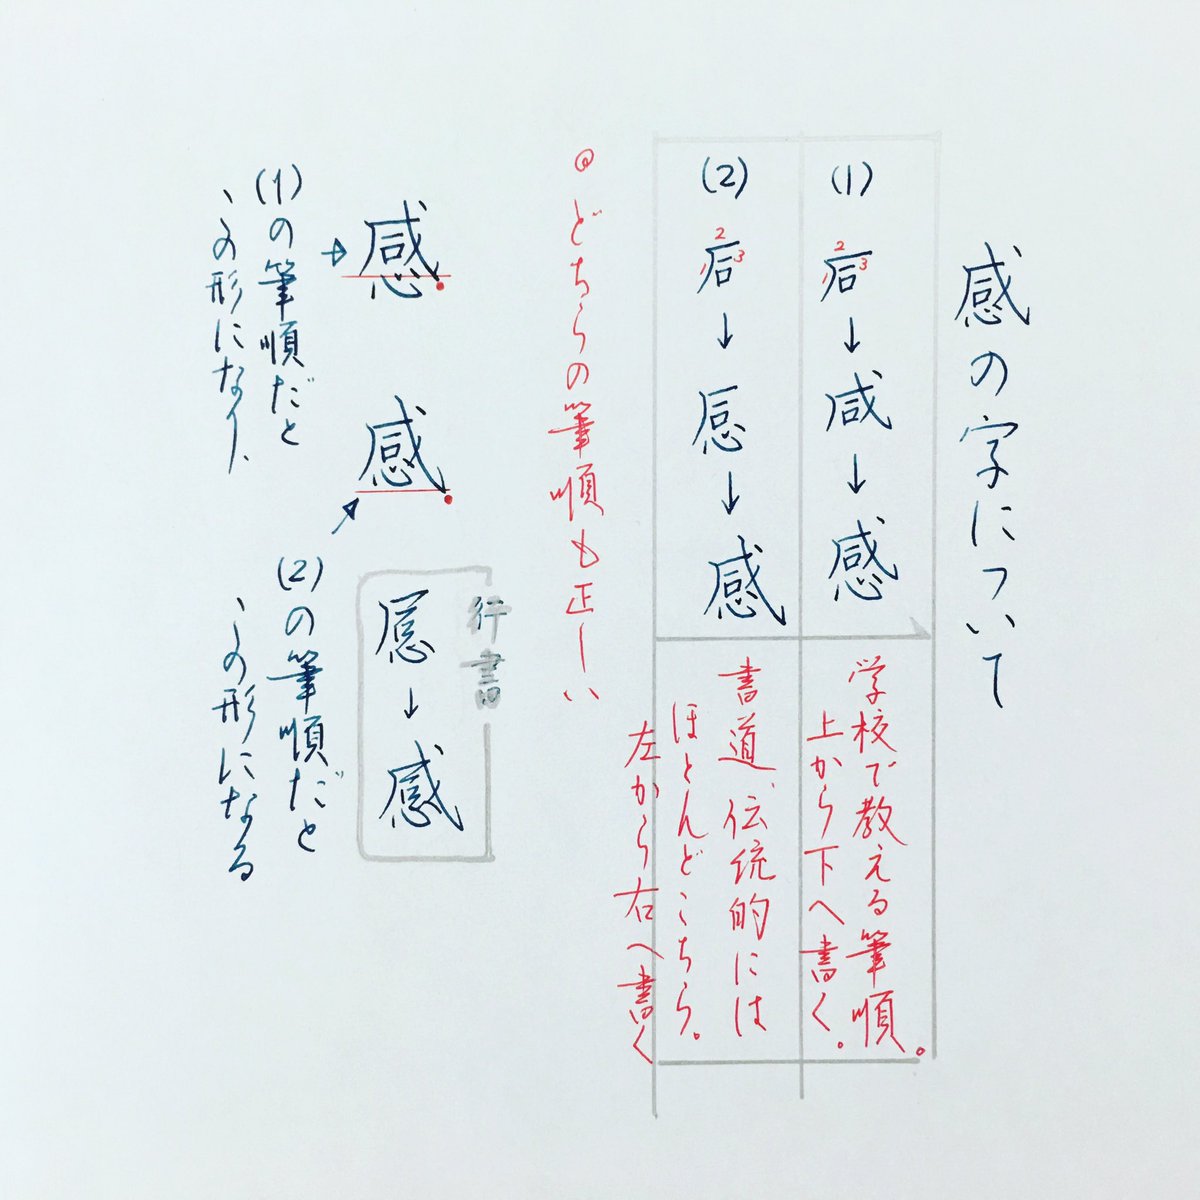 感の字について
(1)
1 2 3
↓
咸
↓
感
学校で教える筆順。
上から下へ書く。
(2)
1 2 3
↓
↓
感
書道、伝統的には
ほとんどこちら。
左から右へ書く
◎どちらの筆順も正しい
行書
↓
感
感
感
(1)の筆順だと
この形になり、
(2)の筆順だと
この形になる